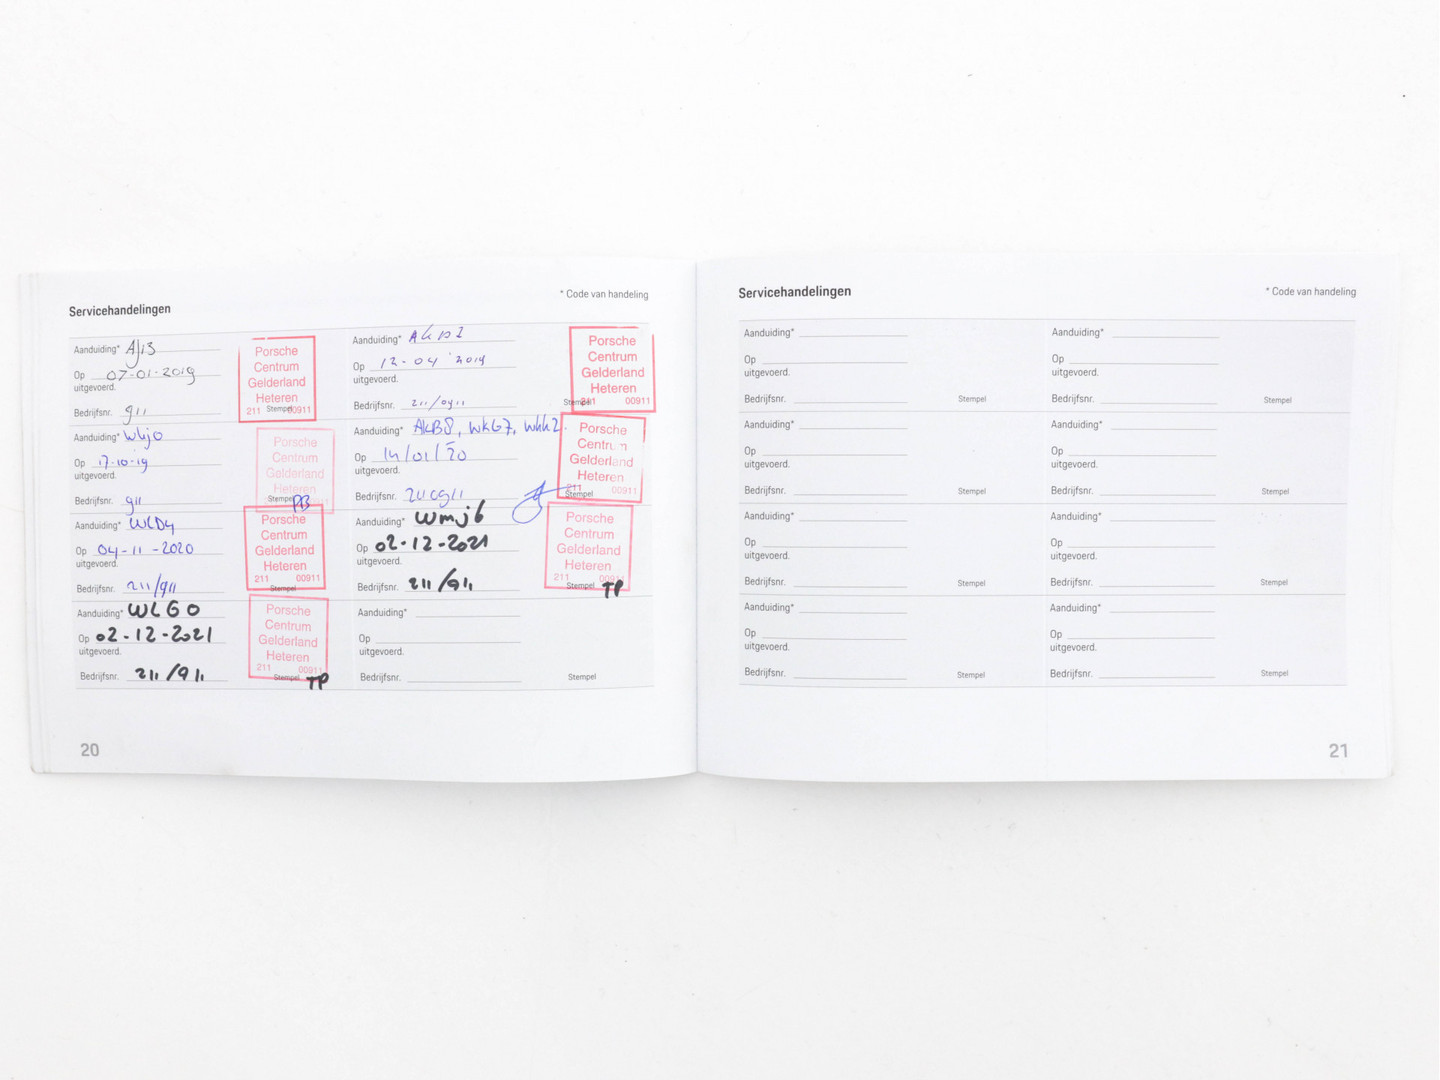 Servicehandelingen
* Code van handeling
Aanduiding* AJ13
Op 07-01-2019
uitgevoerd.
Bedrijfsnr. 911
Porsche
Centrum
Gelderland
Heteren
211 Stempel 00911
Aanduiding*
Op 12-04-2019
uitgevoerd.
Bedrijfsnr. 211/0911
Porsche
Centrum
Gelderland
Heteren
Stempel 211 00911
Aanduiding* WKJ0
Op 17-10-19
uitgevoerd.
Bedrijfsnr. 911
Porsche
Centrum
Gelderland
Heteren
Stempel PB
Aanduiding* AKB8, WK67, WKK2
Op 14/01/20
uitgevoerd.
Bedrijfsnr.
Porsche
Centrum
Gelderland
Heteren
211 00911
Stempel
Aanduiding* WLD4
Op 04-11-2020
uitgevoerd.
Bedrijfsnr. 211/911
Porsche
Centrum
Gelderland
Heteren
211 00911
Stempel
Aanduiding* WMJ6
Op 02-12-2021
uitgevoerd.
Bedrijfsnr. 211/911
Porsche
Centrum
Gelderland
Heteren
211 00911
Stempel TP
Aanduiding* WLG0
Op 02-12-2021
uitgevoerd.
Bedrijfsnr. 211/911
Porsche
Centrum
Gelderland
Heteren
211 00911
Stempel TP
Aanduiding*
Op
uitgevoerd.
Bedrijfsnr. Stempel
20
Servicehandelingen
* Code van handeling
Aanduiding*
Op
uitgevoerd.
Bedrijfsnr. Stempel
Aanduiding*
Op
uitgevoerd.
Bedrijfsnr. Stempel
Aanduiding*
Op
uitgevoerd.
Bedrijfsnr. Stempel
Aanduiding*
Op
uitgevoerd.
Bedrijfsnr. Stempel
Aanduiding*
Op
uitgevoerd.
Bedrijfsnr. Stempel
Aanduiding*
Op
uitgevoerd.
Bedrijfsnr. Stempel
Aanduiding*
Op
uitgevoerd.
Bedrijfsnr. Stempel
Aanduiding*
Op
uitgevoerd.
Bedrijfsnr. Stempel
21